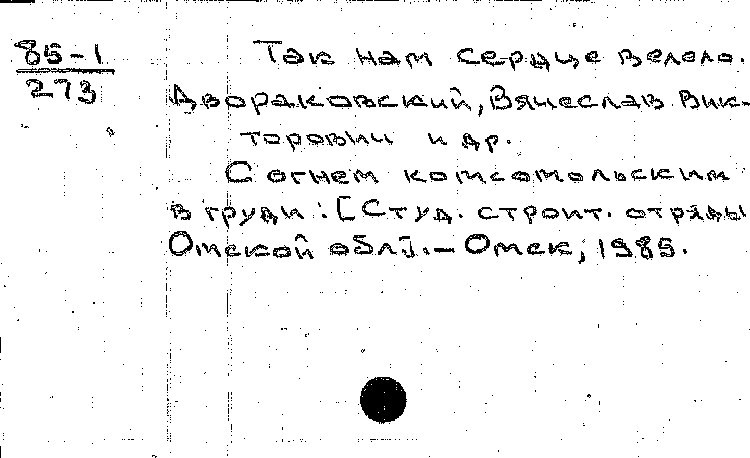 85-1
273
Так нам сердце велело.
Двораковский, Вячеслав Вик-
торович и др.
С огнем комсомольским
в груди: [Студ. строит. отряды
Омской обл]. - Омск, 1985.